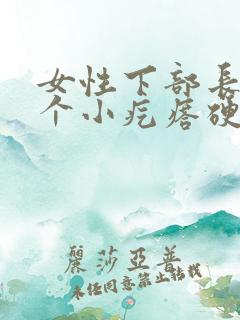 女性下部長
个小疙瘩硬
麗莎亞普
未经同意禁止搭载